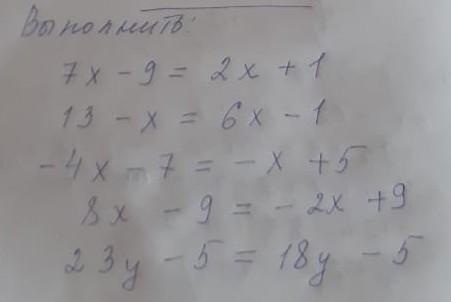 Выполнить:
7x - 9 = 2x + 1
13 - x = 6x - 1
-4x - 7 = -x + 5
8x - 9 = -2x + 9
23y - 5 = 18y - 5